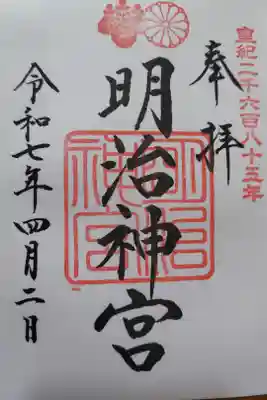 皇紀二千六百八十五年
奉拝
明治神宮
令和七年四月二日
明治神宮